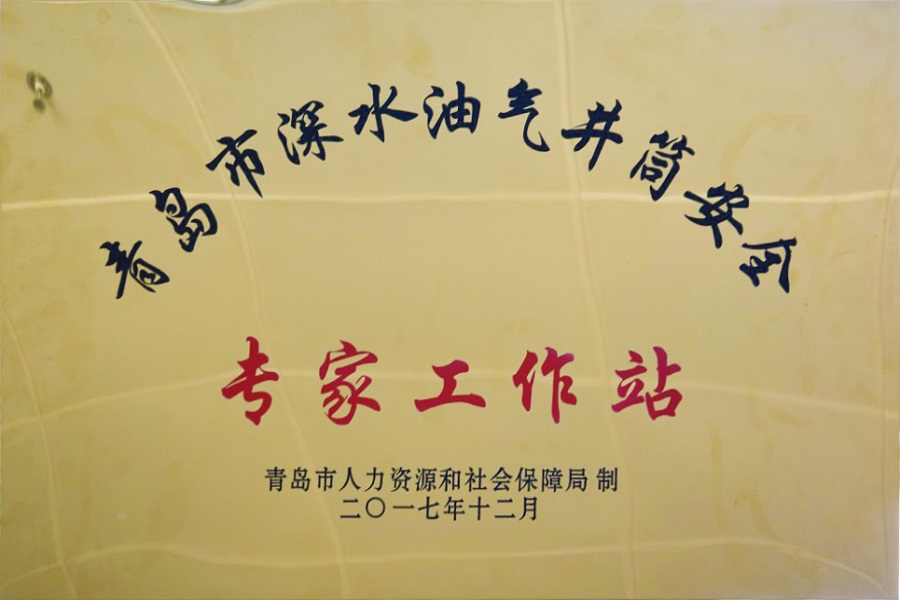 青岛市深水油气井筒安全
专家工作站
青岛市人力资源和社会保障局 制
二〇一七年十二月